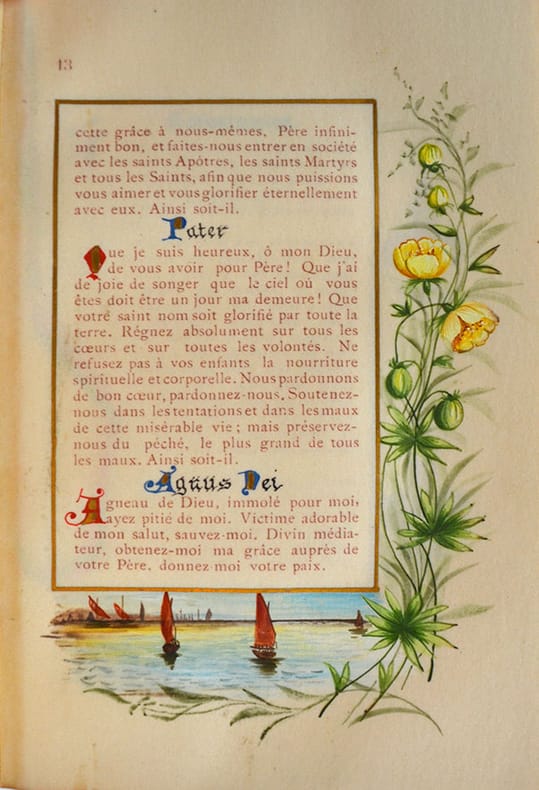 13
cette grâce à nous-mêmes, Père infini-
ment bon, et faites-nous entrer en société
avec les saints Apôtres, les saints Martyrs
et tous les Saints, afin que nous puissions
vous aimer et vous glorifier éternellement
avec eux. Ainsi soit-il.
Pater
Que je suis heureux, ô mon Dieu,
de vous avoir pour Père! Que j'ai
de joie de songer que le ciel où vous
êtes doit être un jour ma demeure! Que
votre saint nom soit glorifié par toute la
terre. Régnez absolument sur tous les
cœurs et sur toutes les volontés. Ne
refusez pas à vos enfants la nourriture
spirituelle et corporelle. Nous pardonnons
de bon cœur, pardonnez-nous. Soutenez-
nous dans les tentations et dans les maux
de cette misérable vie; mais préservez-
nous du péché, le plus grand de tous
les maux. Ainsi soit-il.
Agnus Dei
Agneau de Dieu, immolé pour moi,
ayez pitié de moi. Victime adorable
de mon salut, sauvez-moi. Divin média-
teur, obtenez-moi ma grâce auprès de
votre Père, donnez-moi votre paix.